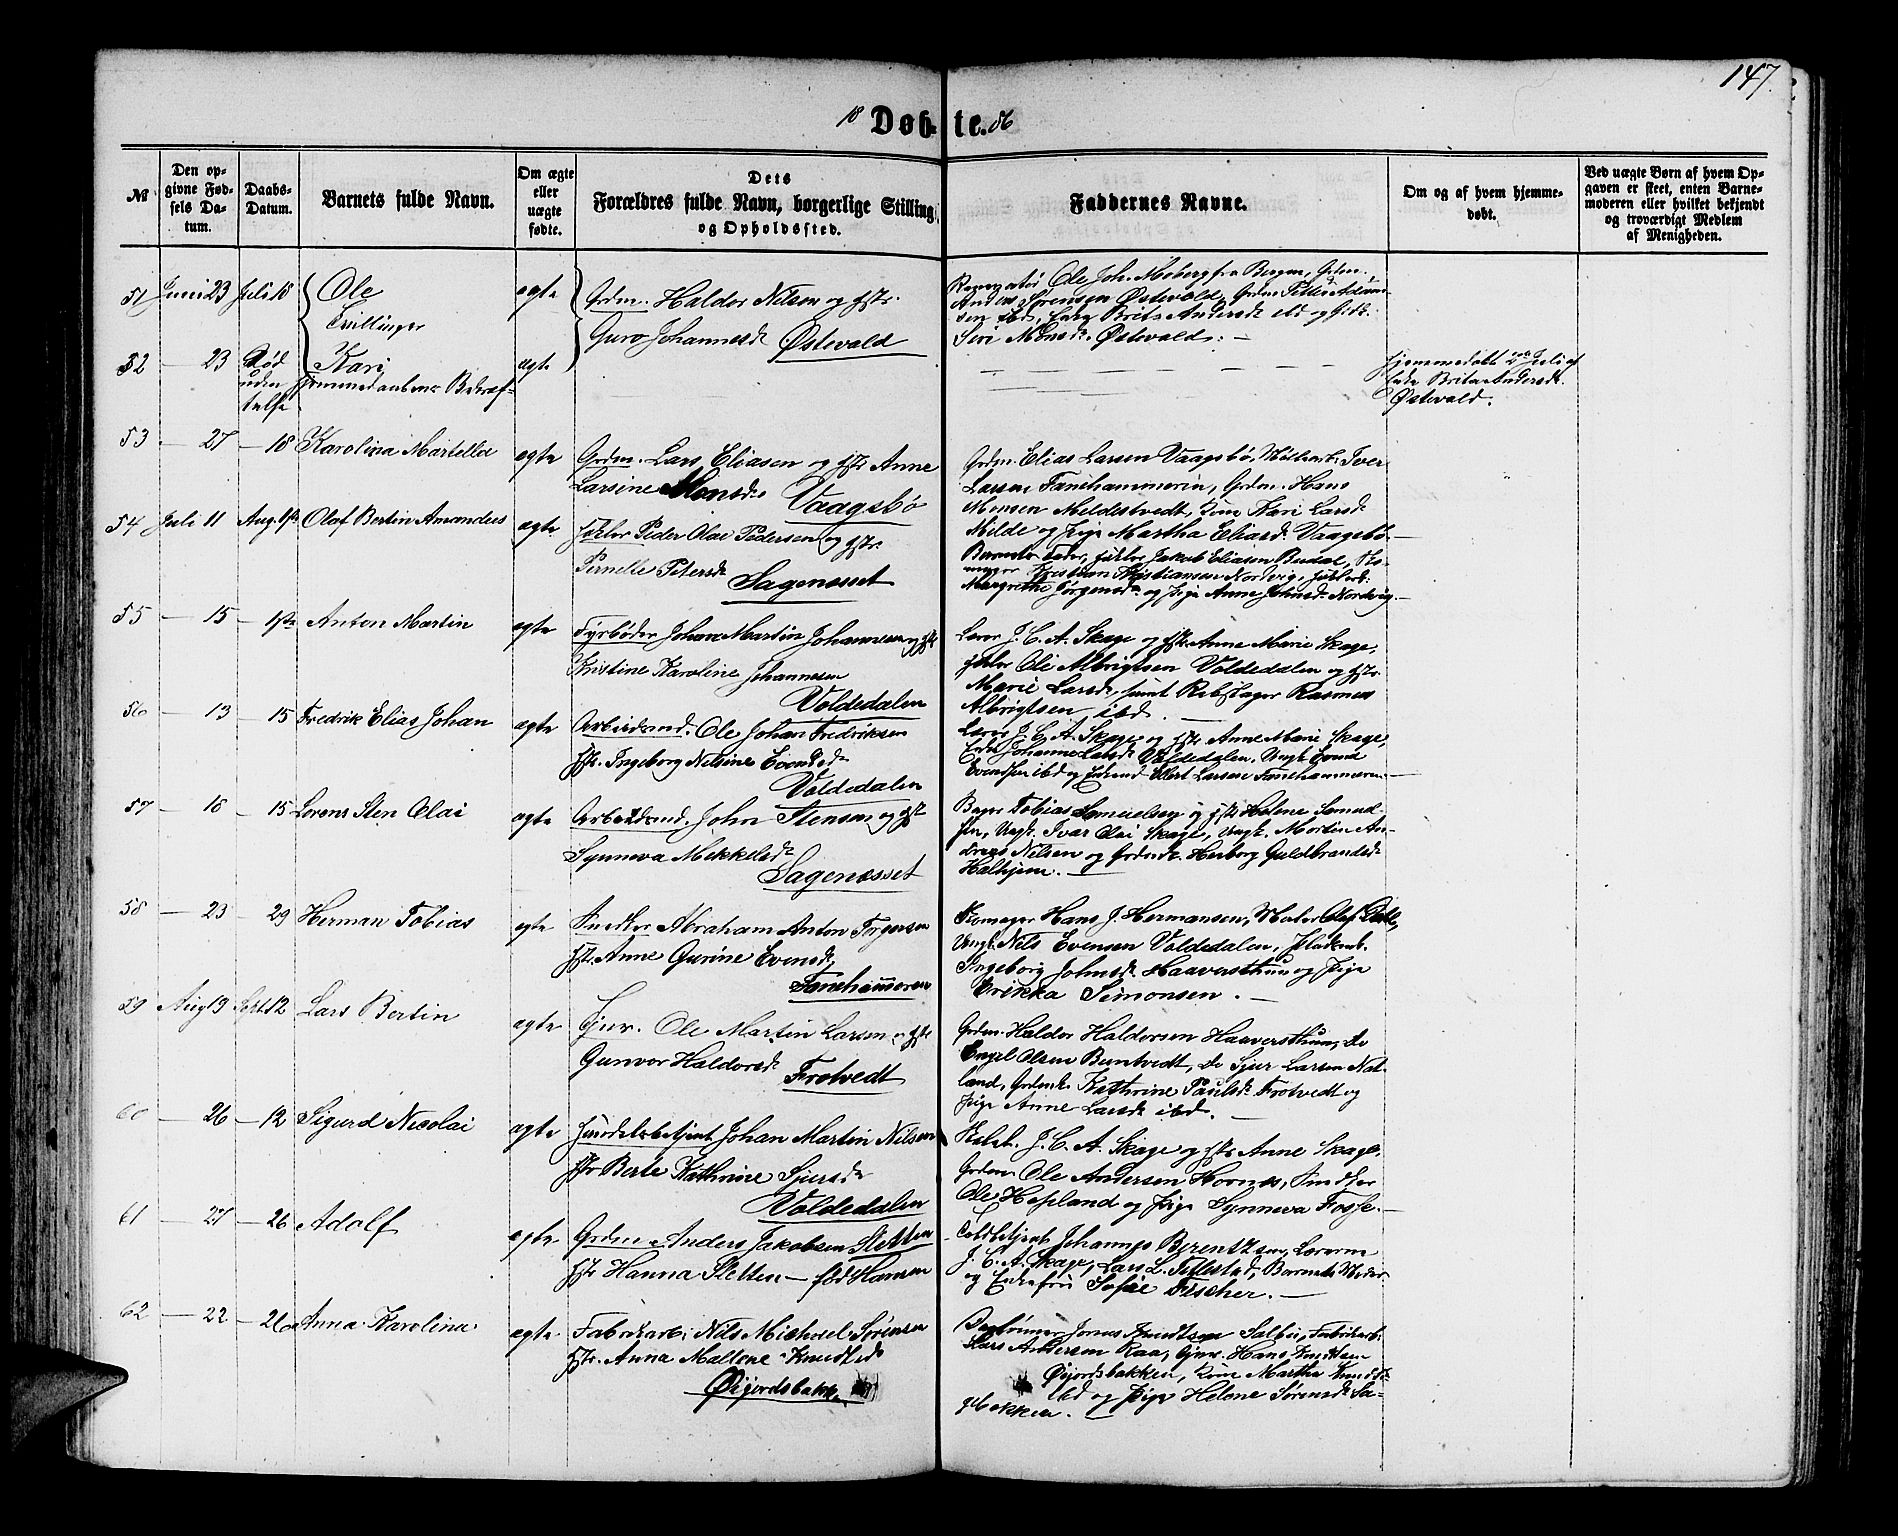 147.
18 Døb- te. 86
№
Den op-
givne Fød-
sels Da-
tum.
Daabs-
Datum.
Barnets fulde Navn.
Om ægte
eller
uægte
fødte.
Dets
Forældres fulde Navn, borgerlige Stilling
og Opholdssted.
Faddernes Navne.
Om og af hvem hjemme-
døbt.
Ved uægte Børn af hvem Op-
gaven er skeet, enten Barne-
moderen eller hvilket bekjendt
og troværdigt Medlem
af Menigheden.
51 Juni 23 Juli 18 Ole
Tvillinger
ægte
Grdm. Haldor Nilsen og Hstr.
Guro Johannesd. Østevold
Ole Joh. Moberg fra Bergen, Grdm.
Anders Sørensen Østevold, Grdm.
ibd, Brita Andersd. ibd og
Siri Monsd. Østevold. —
52 — 23 Død
uden
Kari
Hjemmedaabens Bekræf-
telse
ægte
Hjemmedøbt Juli af
Brita Andersd.
Østevold.
53 — 27 — 18 Karolina Martella ægte
Grdm. Lars Eliasen og Hstr Anne
Larsine Monsd. Vaagsbø
Grdm. Elias Larsen Vaagsbø, Iver
Larsen Fanehammeren, Grdm. Hans
Monsen Meldestvedt, Kone Kari Larsd.
Milde og Pige Martha Eliasd. Vaagsbø.
54 Juli 11 Aug. 1ste Olaf Bertin Amandus ægte
Peder Olai Pedersen og Hstr.
Pernelle Petersd. Sagenæsset
Barnets Fader, Jakob Eliasen
Kristian Kristiansen Nordvig,
Margrethe Jørgensd. og Pige Anne Johnsd. Nordvig.
55 — 15 — 1ste Anton Martin ægte
Fyrbøder Johan Martin Johannesen og Hstr
Kristine Karoline Johannesen
Voldedalen
Lærer J. C. A. Skage og Hstr Anne Marie Skage,
Ole Albrigtsen Voldedalen og Hstr
Marie Larsd. samt Rebslager Rasmus
Albrigtsen ibd. —
56 — 13 — 15 Fredrik Elias Johan ægte
Arbeidsmd. Ole Johan Fredriksen
Hstr. Ingeborg Nilsine Evensd.
Voldedalen
Lærer J. C. A. Skage og Hstr Anne Marie Skage,
Johanne Larsd. Voldedalen, Ungk. Evend
Evendsen ibd og Ellert Larsen Fanehammeren —
57 — 18 — 15 Lorens Sten Olai ægte
Arbeidsmd. John Stensen og Hst
Synneva Mekkelsd.
Sagenæsset
Bager Tobias Samuelsen og Hstr Helene Samuel-
sen, Ungk. Ivar Olai Skage, Ungk. Martin An-
dreas Nilsen og Herborg Guldbrandsd.
Halhjem. —
58 — 23 — 29 Herman Tobias ægte
Snedker Abraham Anton Torgersen
Hstr. Anne Gurine Evensd.
Fanehammeren
Skomager Hans J. Hermansen, Maler Olaf Dahl,
Ungk. Nils Evensen Voldedalen,
Ingeborg Johnsd. Haaversthun og Pige
Erikka Simonsen. —
59 Aug 13 Sept. 12 Lars Bertin ægte
Gjur. Ole Martin Larsen og Hstr
Gunvor Haldorsd. Frotvedt
Grdm. Haldor Haldorsen Haaversthun, do
Engel Olsen Bontvedt, do Sjur Larsen Nat-
land, Kathrine Paulsd. Frotvedt og
Pige Anne Larsd. ibd. —
60 — 26 — 12 Sigurd Nicolai ægte
Handelsbetjent Johan Martin Nilsen
Hstr Berte Kathrine Sjursd.
Voldedalen
J. C. A. Skage og Hstr Anne Skage,
Grdm. Ole Andersen Hovnes, Snedker
Ole Hopland og Pige Synneva Fosse. —
61 — 27 — 26 Adolf ægte
Grdm. Anders Jakobsen Sletten
Hstr Hanna Sletten — fød Hansen
Toldbetjent Johannes Berentzen, Lærerne
J. C. A. Skage, Lars L. Titlestad, Barnets Moder
og Enkefru Sofie Fischer. —
62 — 22 — 26 Anna Karolina ægte
Fabrikarb. Nils Michael Sørensen
Hstr. Anna Malene Knudsd.
Øijordsbakk.
Jonas Knudsen Salbu, Fabrikarb.
Lars Andersen Raa, Gjur. Hans Knudsen
Øijordsbakken, Kone Martha Knudsd.
ibd og Pige Helene Sørensd. Sa-